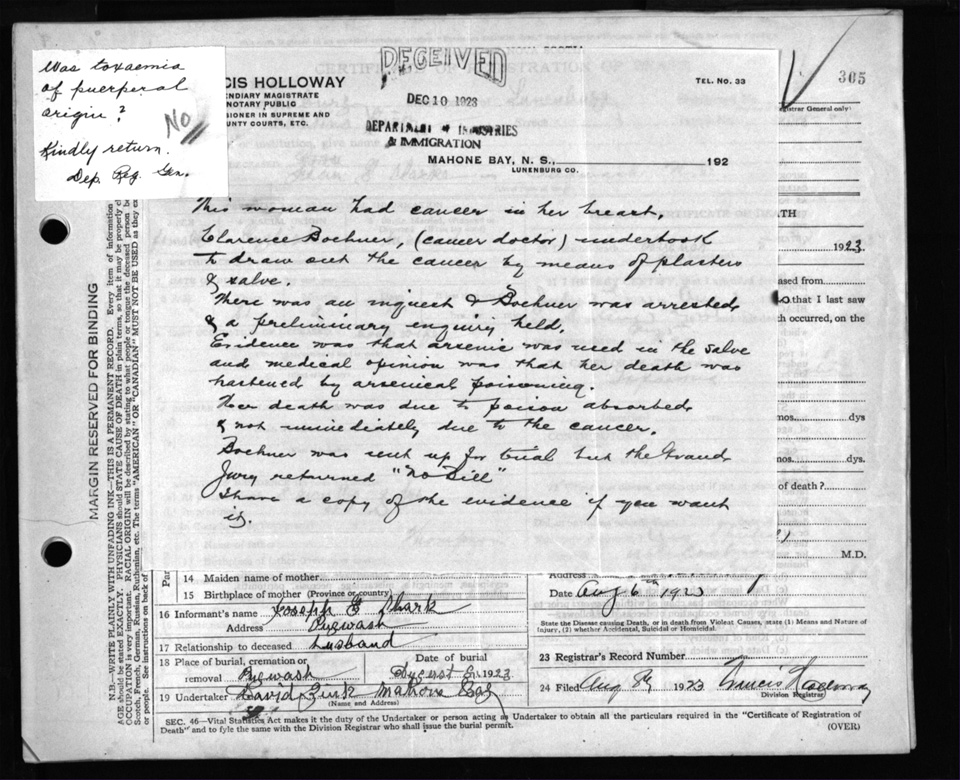 Was toxaemia
of puerperal
origin?
No
Kindly return.
Dep. Reg. Gen.
CIS HOLLOWAY
ENDIARY MAGISTRATE
NOTARY PUBLIC
SIONER IN SUPREME AND
UNTY COURTS, ETC.
RECEIVED
DEC 10 1923
DEPARTMENT of INDUSTRIES
& IMMIGRATION
TEL. NO. 33
MAHONE BAY, N. S., 192
LUNENBURG CO.
305
istrar General only
This woman had cancer in her breast.
Clarence Boehner, (cancer doctor) undertook
to draw out the cancer by means of plasters
& salve.
There was an inquest & Boehner was arrested
& a preliminary enquiry held.
Evidence was that arsenic was used in the salve
and medical opinion was that her death was
hastened by arsenical poisoning.
Her death was due to poison absorbed
& not immediately due to the cancer.
Boehner was sent up for trial but the Grand
Jury returned "No Bill"
I have a copy of the evidence if you want
it.
ATH
1923
ased from
that I last saw
h occurred, on the
mos. dys
mos. dys.
of death?
M.D.
MARGIN RESERVED FOR BINDING
N.B.—WRITE PLAINLY WITH UNFADING INK—THIS IS A PERMANENT RECORD. Every item of information
AGE should be stated EXACTLY. PHYSICIANS should STATE CAUSE OF DEATH in plain terms, so that it may be properly
OCCUPATION is very important. RACIAL ORIGIN will be described by stating to what people or tongue the deceased person
Scotch, French, German, Russian, Ruthenian, etc. The terms "AMERICAN" or "CANADIAN" MUST NOT BE USED as they
or people. See instructions on back of
14 Maiden name of mother
15 Birthplace of mother (Province or country)
16 Informant's name Joseph Shark
Address Pugwash
17 Relationship to deceased Husband
18 Place of burial, cremation or
removal Pugwash
Date of burial
1923
19 Undertaker David Mahone Bay
(Name and Address)
Address
Date Aug 6th 1923
State the Disease causing Death, or in death from Violent Causes, state (1) Means and Nature of
Injury, (2) whether Accidental, Suicidal or Homicidal.
23 Registrar's Record Number
24 Filed Aug 8th 1923 Francis Holloway
Division Registrar
SEC. 46—Vital Statistics Act makes it the duty of the Undertaker or person acting as Undertaker to obtain all the particulars required in the "Certificate of Registration of
Death" and to fyle the same with the Division Registrar who shall issue the burial permit.
(OVER)